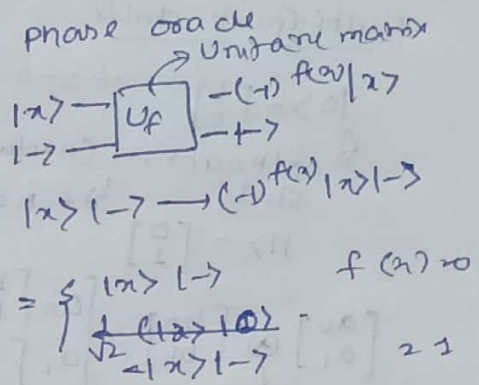 phase oracle
Unitary matrix
|x> — U_f — (-1)^f(x) |x>
|-> — — |->
|x> |-> → (-1)^f(x) |x> |->
= { |x> |-> f(x) = 0
-|x> |-> = 1